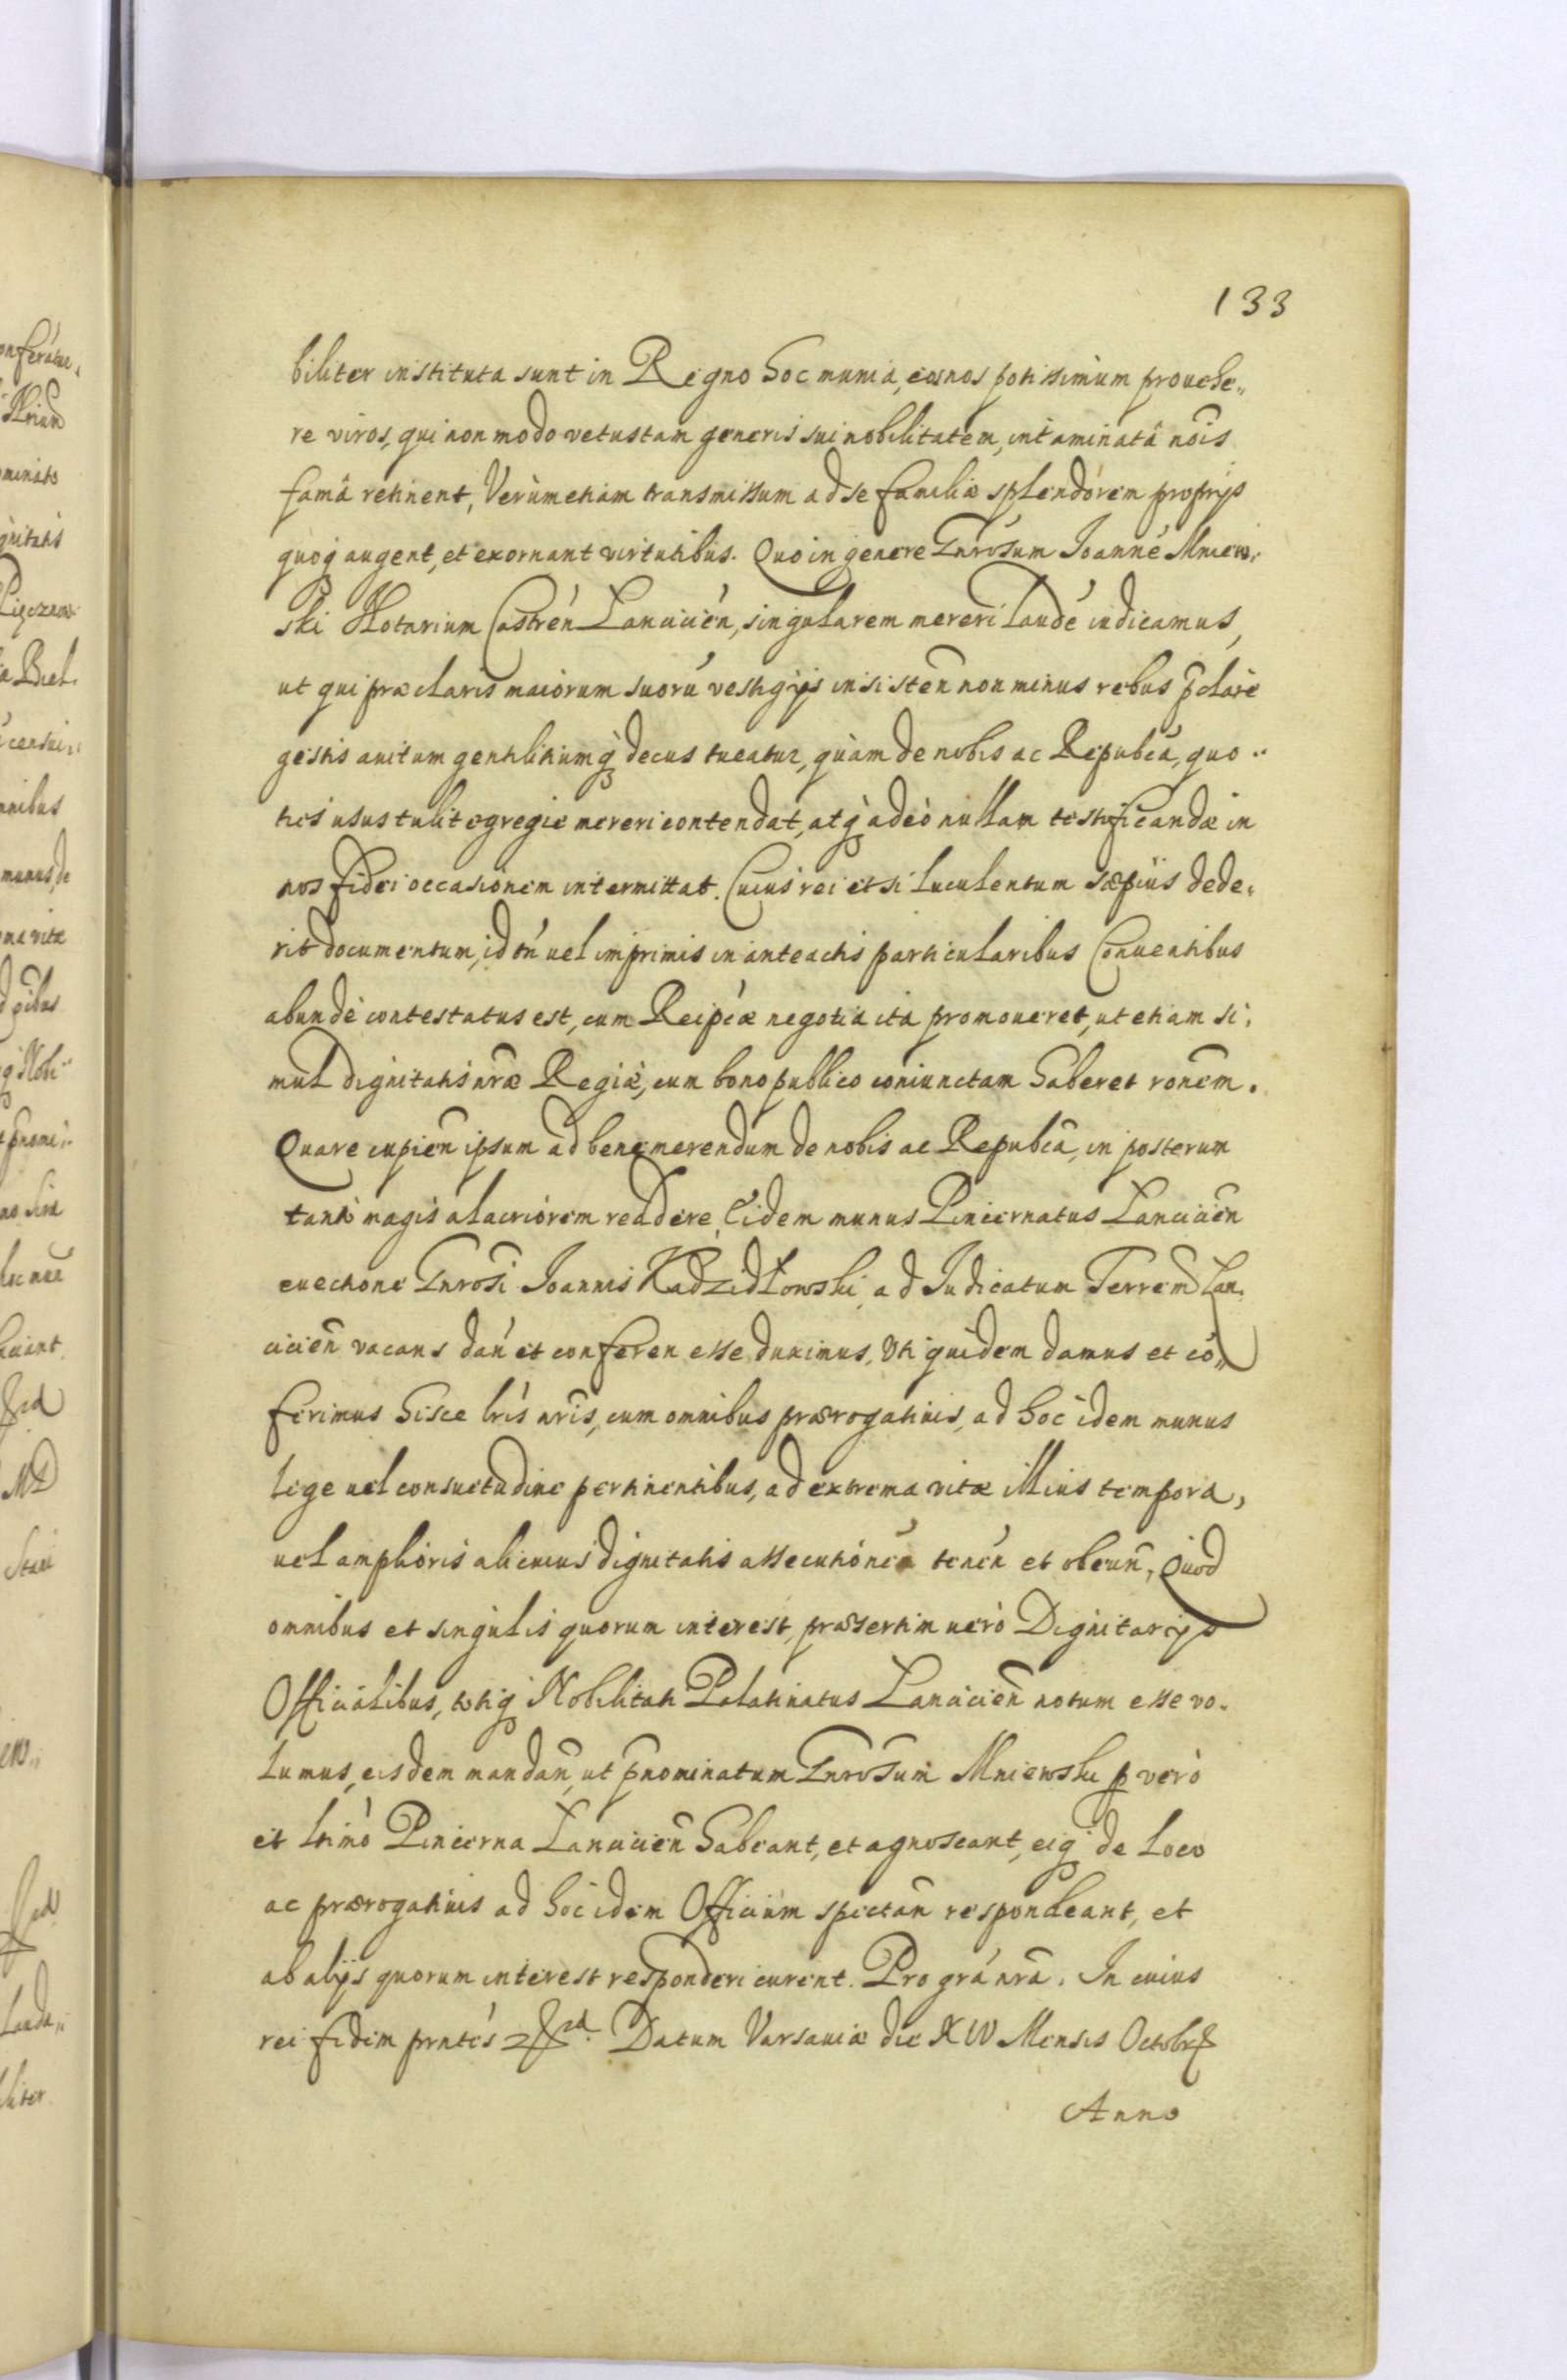 133
biliter instituta sunt in Regno hoc munia, eos nos potissimum prouehe„
re viros, qui non modo vetustam generis sui nobilitatem, intaminatâ nõis
famâ retinent, Verùm etiam transmissum ad se familiæ splendórem proprijs
quoq; augent, et exornant virtutibus. Quo in genere Gnrosum Joanné Mniew„
ski Notarium Castrén Lancicién, singularem mereri laudé iudicamus,
ut qui præclaris maiorum suorũ vestigijs insisteñ non minus rebus p̃claré
gestis auitum gentilitiumq; decus tueatur, quàm de nobis ac Repubcâ, quo„
ties usus tulit egregiè mereri contendat, atq; adeò nullam testificandæ in
nos fidei occasionem intermittat. Cuius rei etsi luculentum sæpiùs dede„
rit documentum, id tñ uel imprimis in anteactis particularibus Conuentibus
abundè contestatus est, cum Reipcæ negotia ita promoueret, ut etiam si„
mul dignitatis nræ Regiæ, cum bono publico coniunctam haberet ronem.
Quare cupieñ ipsum ad bene merendum de nobis ac Repubcâ, in posterum
tanto magis alacriorem reddere, Eidem munus Pincernatus Lancicieñ
euectione Gnrosi Joannis Kadzidłowski, ad Iudicatum Terrem̃ Lan„
cicieñ vacans dañ et conferen esse duximus, Uti quidem damus et cõ„
ferimus hisce lris nris, cum omnibus prærogatiuis, ad hoc idem munus
lege uel consuetudine pertinentibus, ad extrema vitæ illius tempora,
uel amplioris alicuius dignitatis assecutionem teneñ et obeuñ, Quod
omnibus et singulis quorum interest, præsertim uerò Dignitarijs
Officialibus, totiq; Nobilitati Palatinatus Lancicieñ notum esse vo„
lumus, eisdem mandañ, ut p̃nominatum Gnrosum Mniewski p̱ verò
et ltimo Pincerna Lancicieñ habeant, et agnoscant, eiq; de loco
ac prærogatiuis ad hoc idem Officium spectañ respondeant, et
ab alijs quorum interest responderi curent. Pro grã nrã. In cuius
rei fidem prntes Datum Varsauiæ die XIV Mensis Octobr
Anno